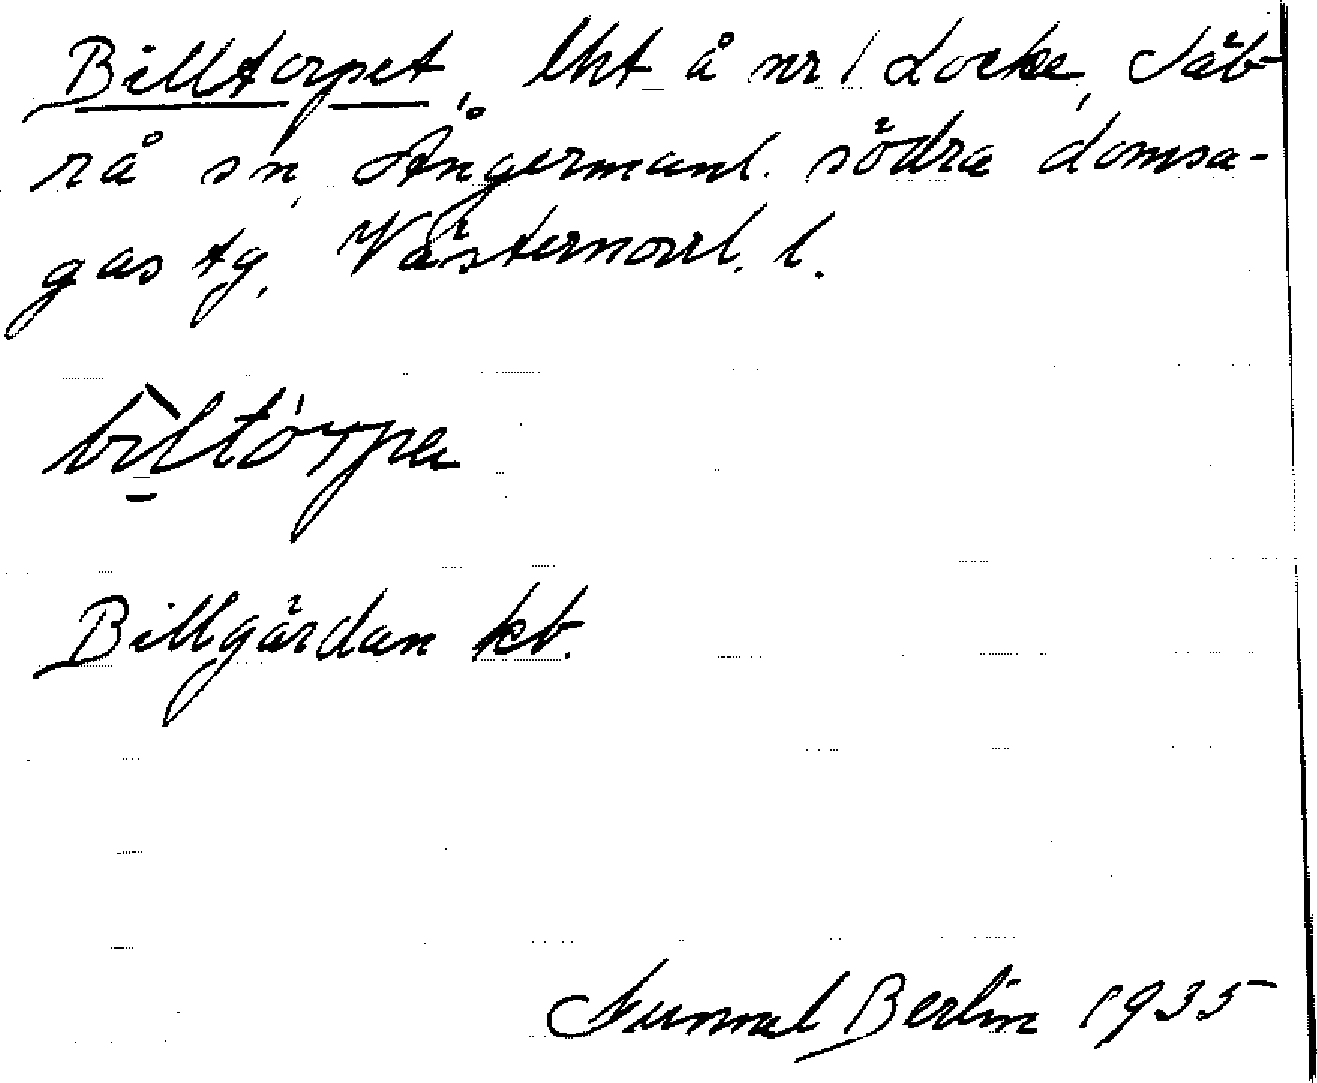 Billtorpet, lht å nr 1 Locke, Säb-
rå sn, Ångermanl. södra domsa-
gas tg, Västernorrl. l.
bìltórpa
Billgärdan kb.
Gunnel Berlin 1935